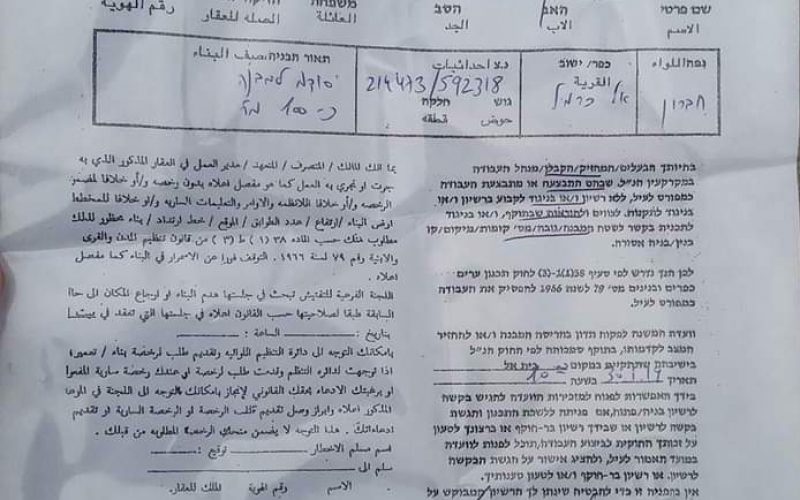 שם פרטי האב הסב משפחת
الاسم الاب الجد العائلة الصلة للعقار رقم الهوية
נפה/اللواء כפר/ישוב נ.צ احداثيات תאור הבניה/وصف البناء
القرية 214473/592318 יסודות למבנה
חברון אל כרמל גוש חלקה כ-100 מ"ר
حوض قطعة
בהיותך הבעלים/המחזיק/הקבלן/מנהל העבודה
במקרקעין הנ"ל, שבהם התבצעה או מתבצעת העבודה
כמפורט לעיל, ללא רשיון ו/או בניגוד לקבוע ברשיון ו/או
בניגוד לתקנות, לצווים ולהוראות שבתוקף, ו/או בניגוד
לתכנית בקשר לשטח המבנה/גובה/מס' קומות/מיקום/קו
בנין/בניה אסורה.
לכן הנך נדרש לפי סעיף 38(1)-(3) לחוק תכנון ערים
כפרים ובנינים מס' 79 לשנת 1966 להפסיק את העבודה
כמפורט לעיל.
וועדת המשנה לפקוח תדון בהריסת המבנה ו/או להחזיר
המצב לקדמותו, בתוקף סמכותה לפי החוק הנ"ל
בישיבתה שתתקיים במקום בית אל
תאריך בשעה 10
בידך האפשרות לפנות למזכירות הוועדה להגיש בקשה
לרשיון בניה/פתוח, אם פנית ללשכת התכנון והגשת
בקשה לרשיון או שבידך רשיון בר-תוקף או ברצונך לטעון
על זכותך החוקית לביצוע העבודה, תוכל לפנות לוועדה
במועד האמור לעיל, ולהציג אישור על הגשת הבקשה
לרשיון, או רשיון בר-תוקף ו/או לטעון טענותיך.
אין בהפניה זו כדי להבטיח שינתן לך הרשיון המבוקש על
بما انك المالك / المتصرف / المتعهد / مدير العمل في العقار المذكور الذي به
جرت او تجري به العمل كما هو مفصل اعلاه بدون رخصه و/أو خلافا للمضمون
الرخصه و/أو خلافا للانظمه والاوامر والتعليمات السارية و/أو خلافا للمخطط
ارض البناء / ارتفاع / عدد الطوابق / الموقع / خط ارتداد / بناء محظور لذلك
مطلوب منك حسب الماده ٣٨ (١) ط (٣) من قانون تنظيم المدن والقرى
والابنية رقم ٧٩ لسنة ١٩٦٦ التوقف فورا عن الاستمرار في البناء كما مفصل
اعلاه.
اللجنة الفرعية للتفتيش تبحث في جلستها هدم البناء او ارجاع المكان الى حالته
السابقة طبقا لصلاحيتها حسب القانون اعلاه في جلستها التي تعقد في
بتاريخ: الساعة:
بامكانك التوجه الى دائرة التنظيم اللوائيه وتقديم طلب لرخصة بناء / تعمير
اذا توجهت لدائرة التنظيم وقدمت طلب لرخصة او عندك رخصة سارية المفعول
او برغبتك الادعاء بحقك القانوني لإنجاز بامكانك التوجه الى اللجنة في الموعد
المذكور اعلاه وابراز وصل تقديم طلب الرخصة او الرخصة السارية او تقديم
ادعاءاتك. هذا التوجه لا يضمن منحك الرخصة المطلوبه من قبلك.
اسم مسلم الاخطار توقيع:
سلم الى
الاسم رقم الهوية المالك للعقار.